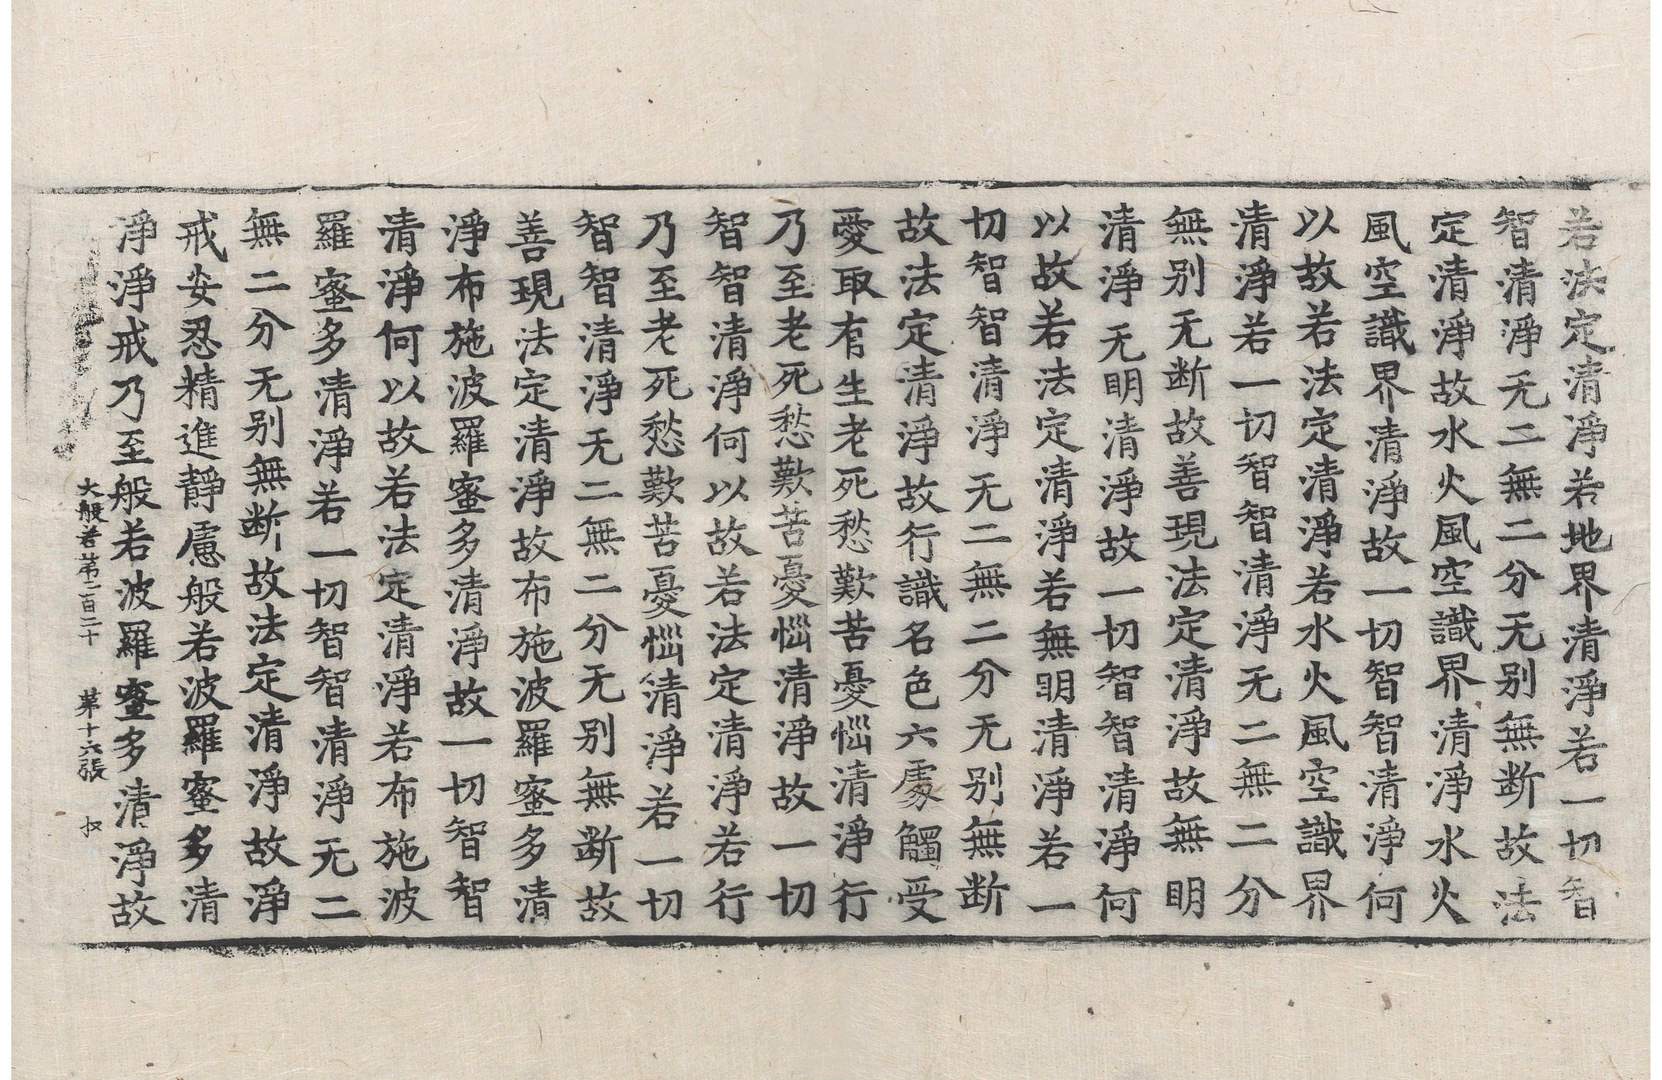 若法定清淨若地界清淨若一切智
智清淨无二無二分无别無断故法
定清淨故水火風空識界清淨水火
風空識界清淨故一切智智清淨何
以故若法定清淨若水火風空識界
清淨若一切智智清淨无二無二分
無别无断故善現法定清淨故無明
清淨无明清淨故一切智智清淨何
以故若法定清淨若無明清淨若一
切智智清淨无二無二分无别無断
故法定清淨故行識名色六處觸受
愛取有生老死愁歎苦憂惱清淨行
乃至老死愁歎苦憂惱清淨故一切
智智清淨何以故若法定清淨若行
乃至老死愁歎苦憂惱清淨若一切
智智清淨无二無二分无别無断故
善現法定清淨故布施波羅蜜多清
淨布施波羅蜜多清淨故一切智智
清淨何以故若法定清淨若布施波
羅蜜多清淨若一切智智清淨无二
無二分无别無断故法定清淨故淨
戒安忍精進靜慮般若波羅蜜多清
淨淨戒乃至般若波羅蜜多清淨故
大般若第二百二十 第十六張 収